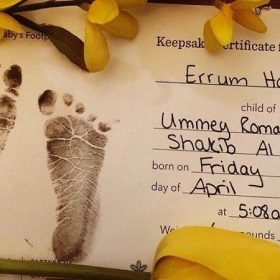 aby's Footp
Keepsake Certificate f
Errum Ha
child of
Ummey Roma
Shakib Al
born on Friday
day of April
at 5:08a
Wei ounds